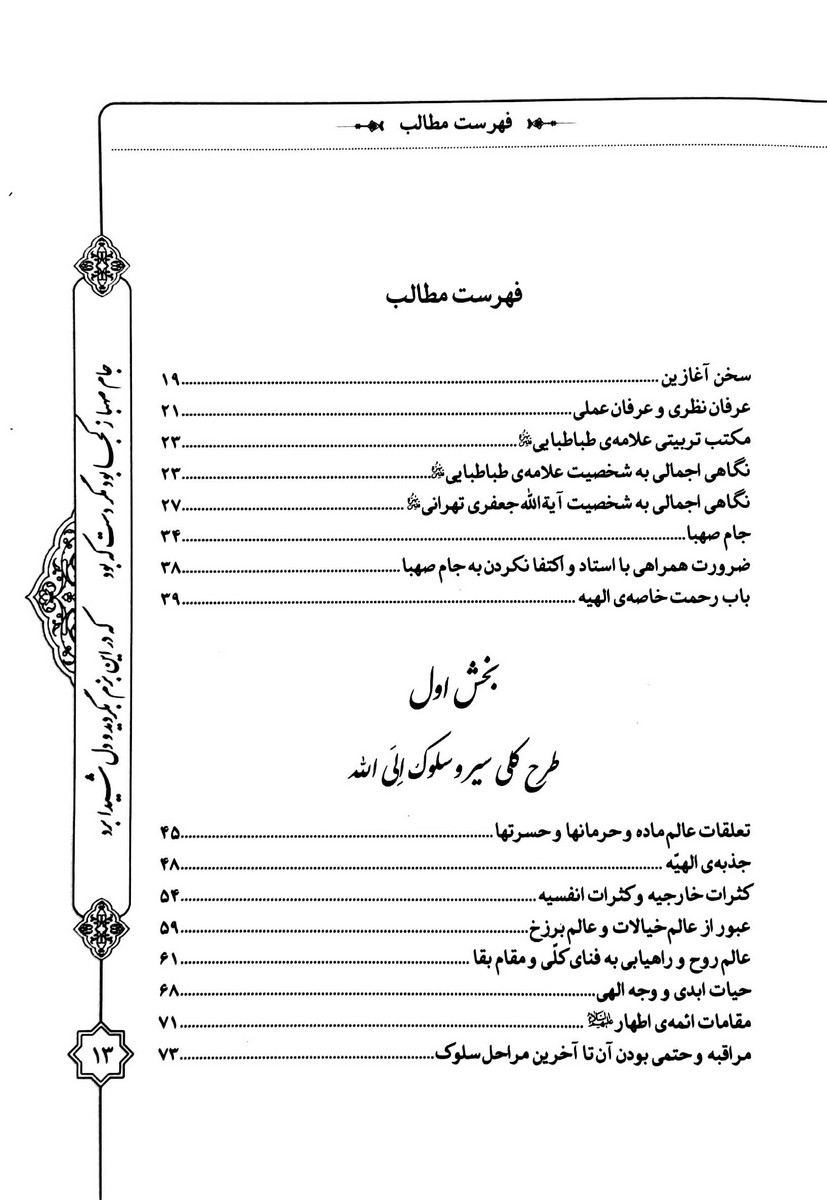 فهرست مطالب
فهرست مطالب
سخن آغازین ........ ۱۹
عرفان نظری و عرفان عملی ........ ۲۱
مکتب تربیتی علامه‌ی طباطبایی ........ ۲۳
نگاهی اجمالی به شخصیت علامه‌ی طباطبایی ........ ۲۳
نگاهی اجمالی به شخصیت آیة‌الله جعفری تهرانی ........ ۲۷
جام صهبا ........ ۳۴
ضرورت همراهی با استاد و اکتفا نکردن به جام صهبا ........ ۳۸
باب رحمت خاصه‌ی الهیه ........ ۳۹
بخش اول
طرح کلی سیر و سلوک إلَی الله
تعلقات عالم ماده و حرمانها و حسرتها ........ ۴۵
جذبه‌ی الهیّه ........ ۴۸
کثرات خارجیه و کثرات انفسیه ........ ۵۴
عبور از عالم خیالات و عالم برزخ ........ ۵۹
عالم روح و راهیابی به فنای کلّی و مقام بقا ........ ۶۱
حیات ابدی و وجه الهی ........ ۶۸
مقامات ائمه‌ی اطهار علیهم‌السلام ........ ۷۱
مراقبه و حتمی بودن آن تا آخرین مراحل سلوک ........ ۷۳
جام صهبا ز کجا بود مگر دست که بود
که در این بزم بگردید و دل شیدا برد
۱۳